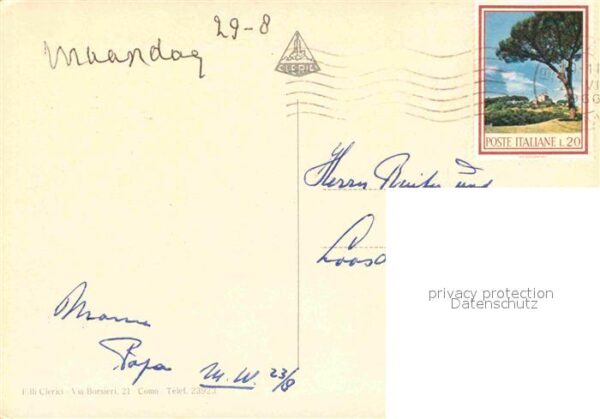 29-8
maandag
CLERICI
POSTE ITALIANE L.20
Herrn
und
privacy protection
Datenschutz
Mama
Papa M.W. 23/8
F.lli Clerici - Via Borsieri, 21 Como - Telef. 23923